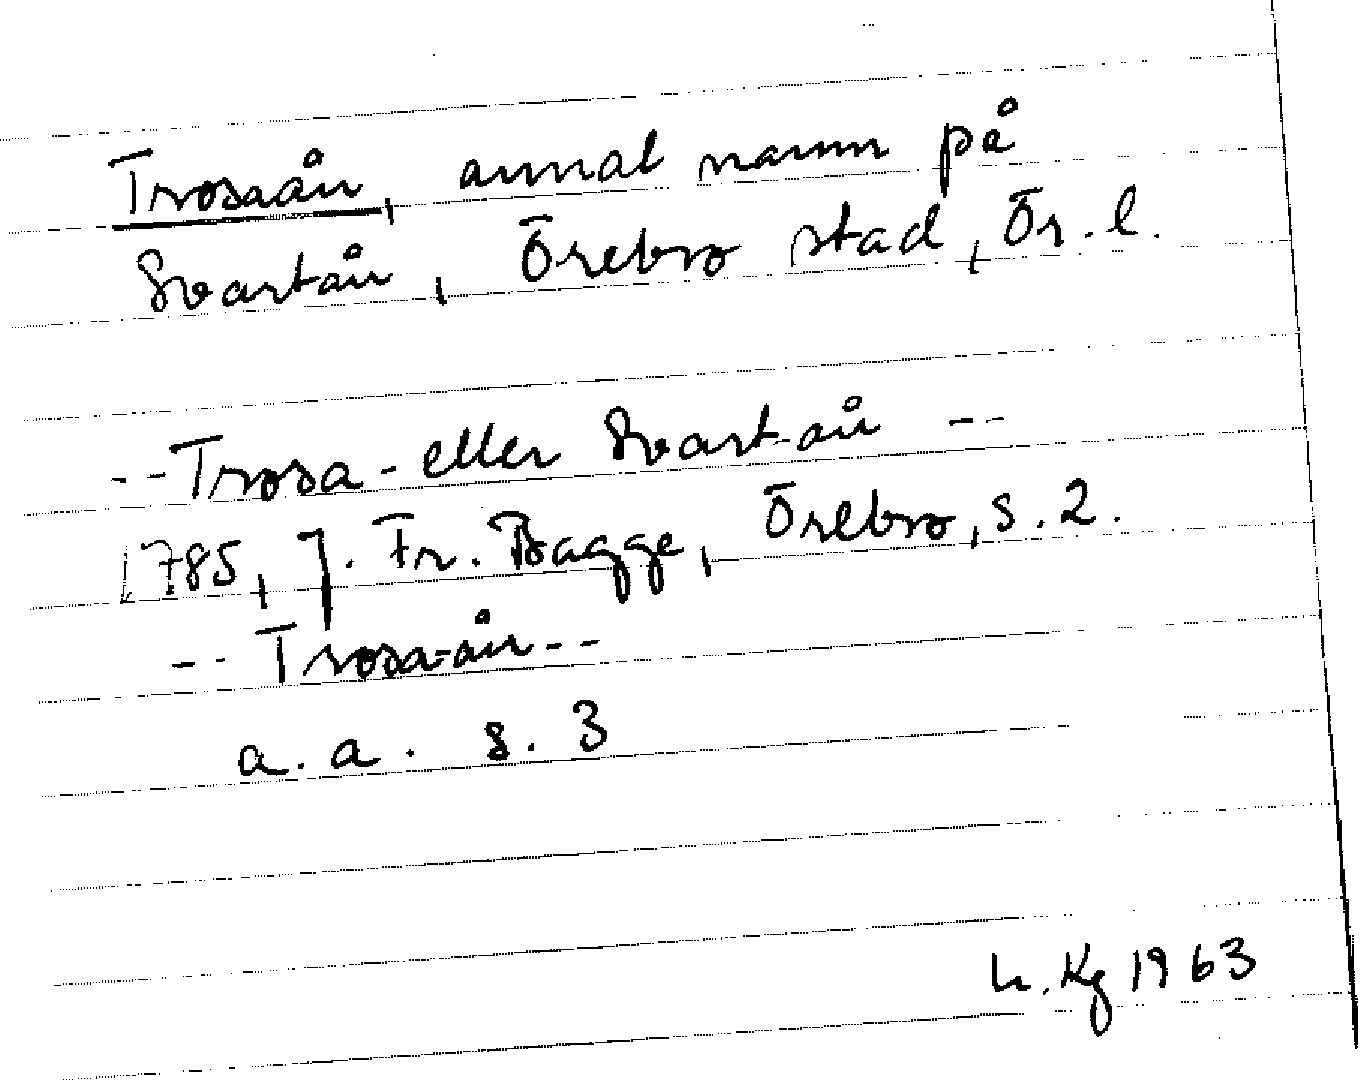 Trosaån, annat namn på
Svartån, Örebro stad, Ör. l.
-- Trosa- eller Svart-ån --
1785, J. Fr. Bagge, Örebro, s. 2.
-- Trosa-ån --
a. a. s. 3
L. Kg 1963